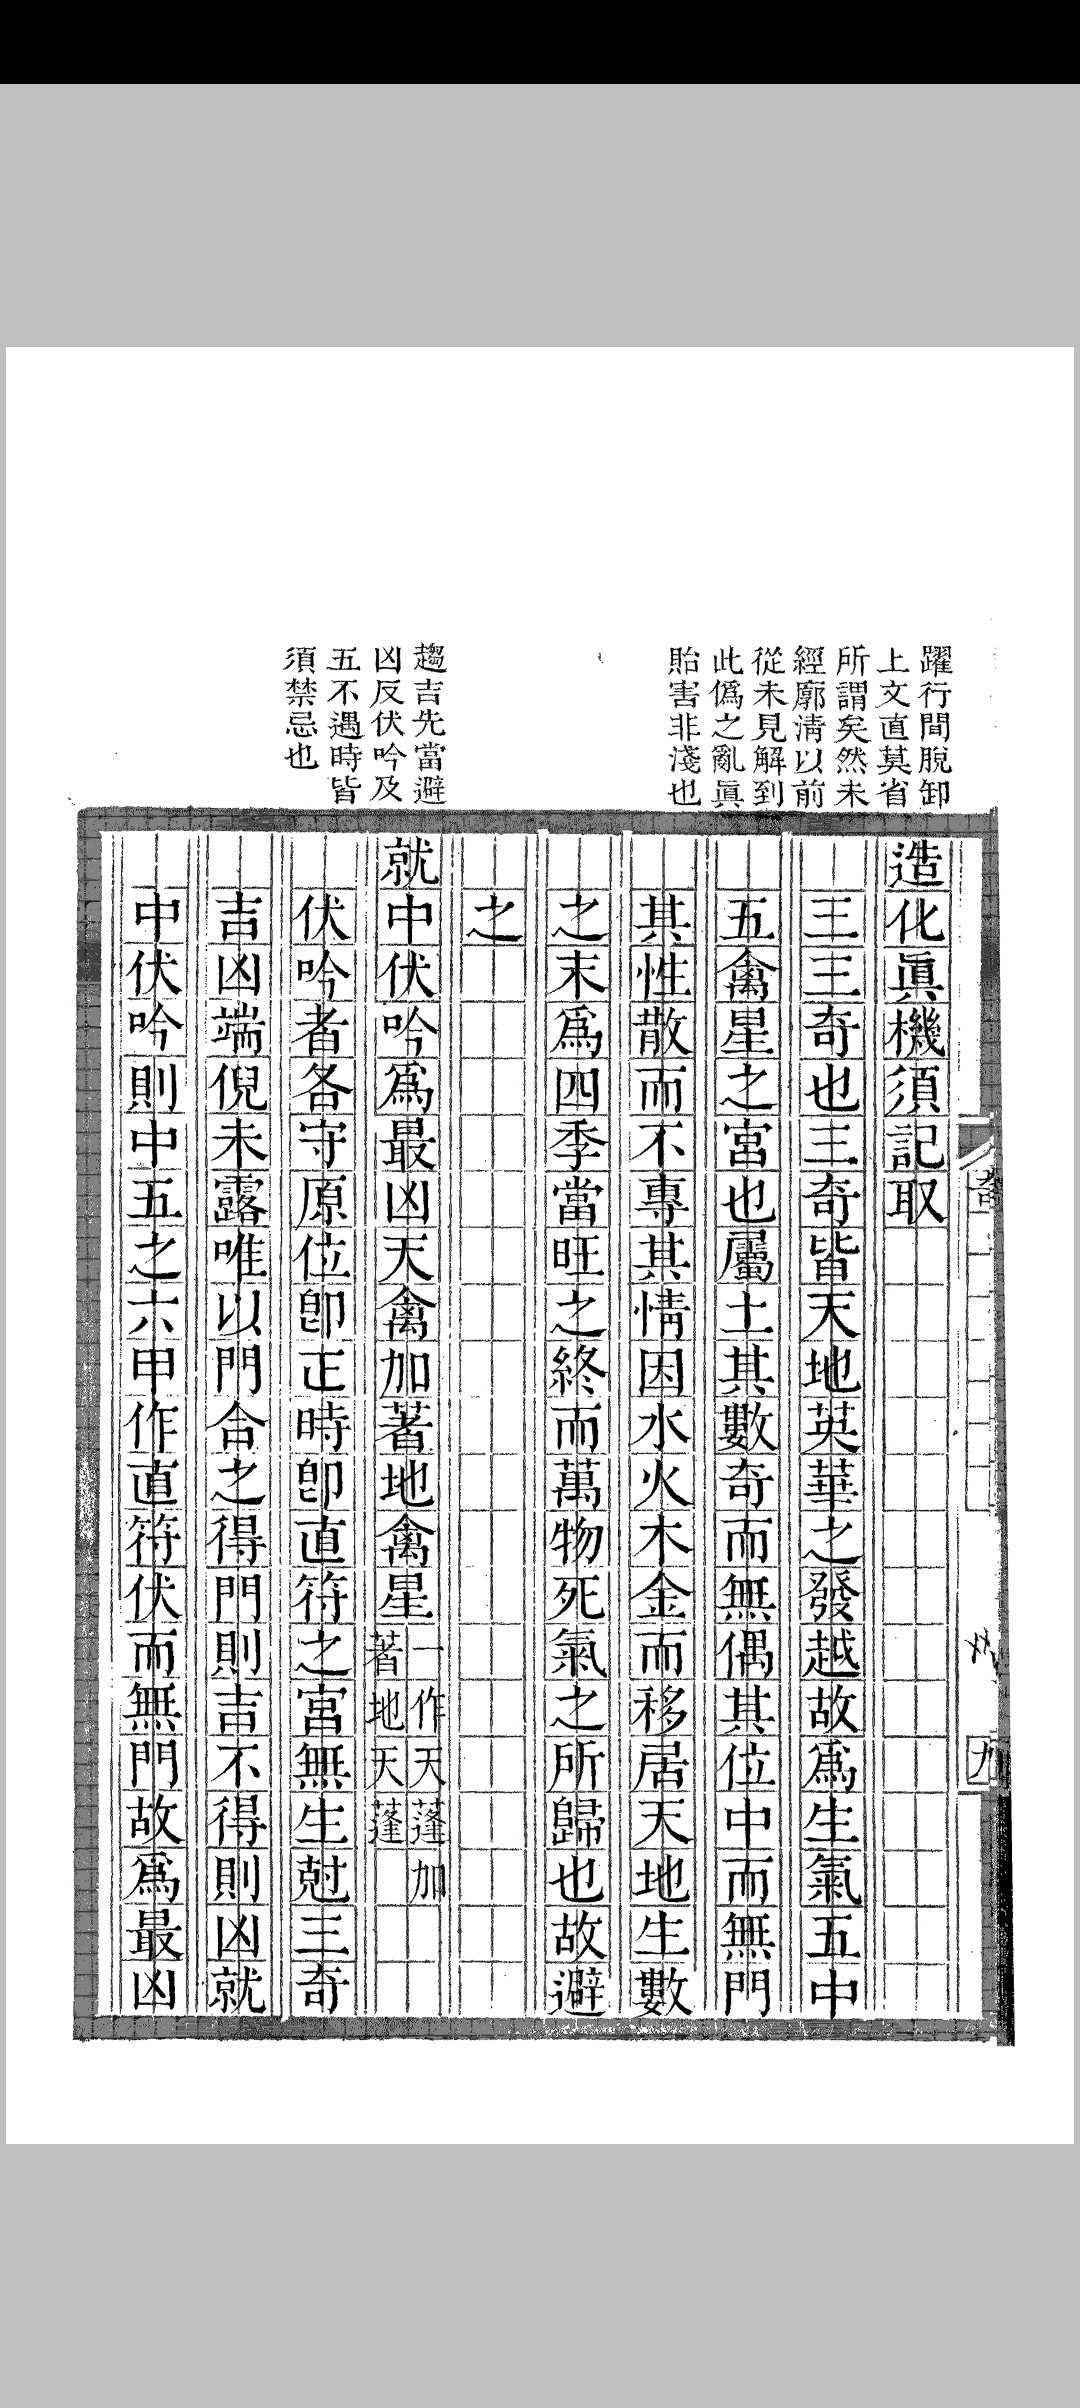 躍行間脫卸
上文直莫省
所謂矣然未
經廓清以前
從未見解到
此僞之亂眞
貽害非淺也
趨吉先當避
凶反伏吟及
五不遇時皆
須禁忌也
造化眞機須記取
三三奇也三奇皆天地英華之發越故爲生氣五中
五禽星之宮也屬土其數奇而無偶其位中而無門
其性散而不專其情因水火木金而移居天地生數
之末爲四季當旺之終而萬物死氣之所歸也故避
之
就中伏吟爲最凶天禽加著地禽星一作天蓬加
著地天蓬
伏吟者各守原位卽正時卽直符之宮無生尅三奇
吉凶端倪未露唯以門合之得門則吉不得則凶就
中伏吟則中五之六甲作直符伏而無門故爲最凶
九